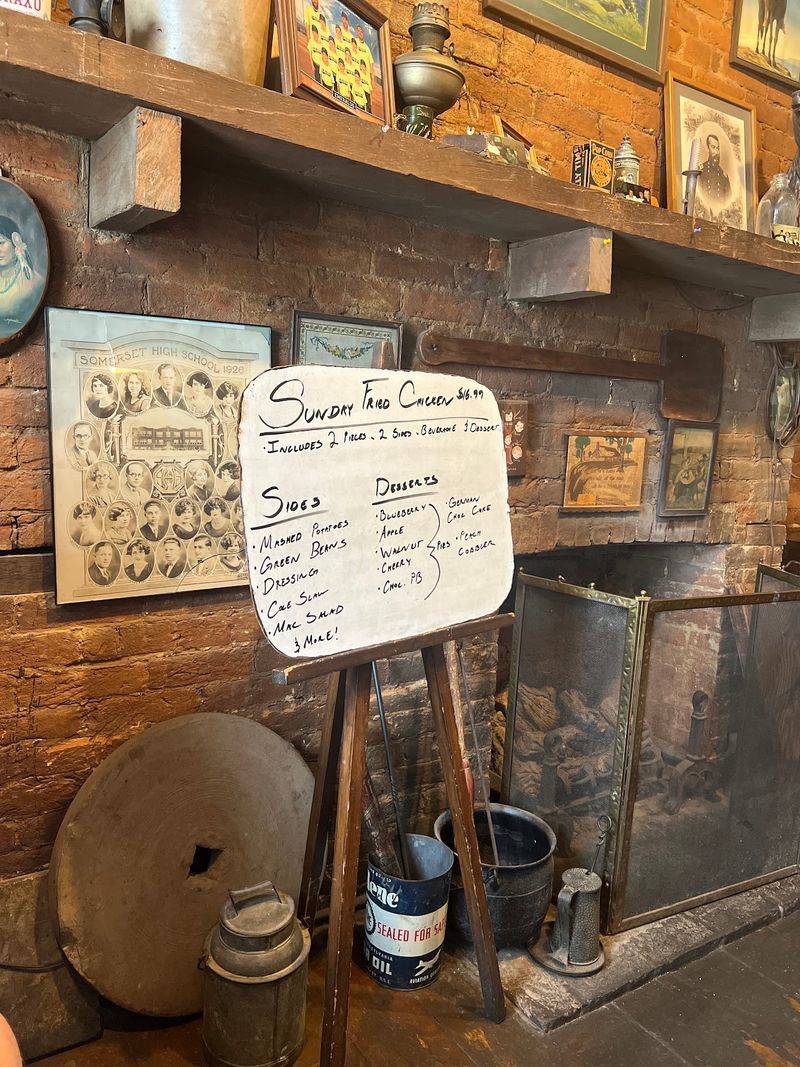 SOMERSET HIGH SCHOOL 1926
SUNDAY FRIED CHICKEN $16.99
· INCLUDES 2 PIECES, 2 SIDES, BEVERAGE & DESSERT
SIDES
· MASHED POTATOES
· GREEN BEANS
· DRESSING
· COLE SLAW
· MAC SALAD
& MORE!
DESSERTS
· BLUEBERRY
· APPLE
· WALNUT
· CHERRY
· CHOC. PB
PIES
· GERMAN
CHOC CAKE
· PEACH
COBBLER
ene
SEALED FOR SA
OIL